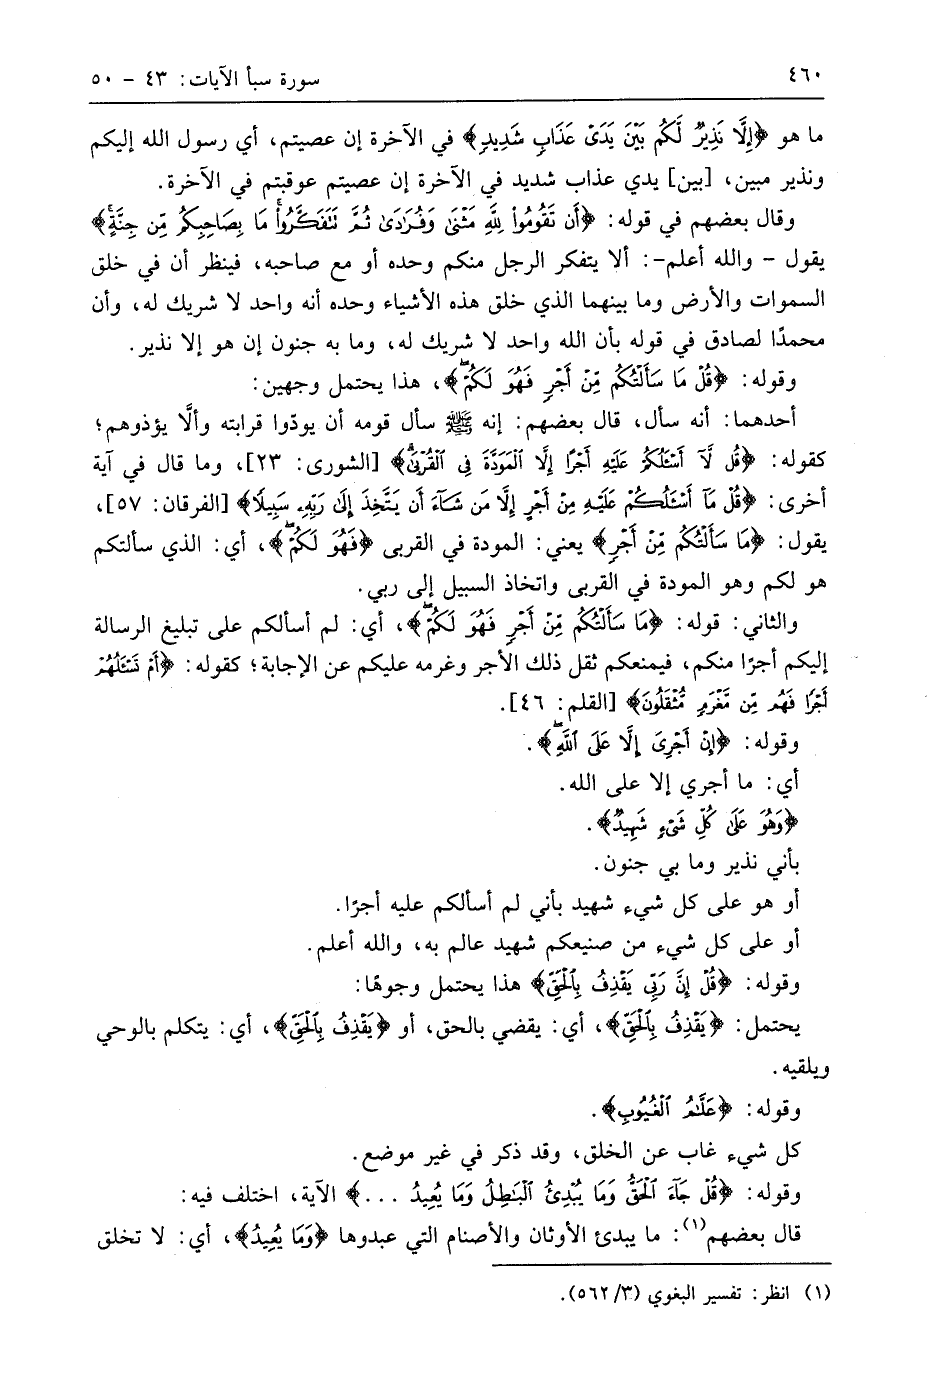 ٤٦٠
سورة سبأ الآيات: ٤٣ - ٥٠
ما هو ﴿إِلَّا نَذِيرٌ لَّكُم بَيْنَ يَدَىْ عَذَابٍ شَدِيدٍ﴾ في الآخرة إن عصيتم، أي رسول الله إليكم
ونذير مبين، [بين] يدي عذاب شديد في الآخرة إن عصيتم عوقبتم في الآخرة.
وقال بعضهم في قوله: ﴿أَن تَقُومُوا۟ لِلَّهِ مَثْنَىٰ وَفُرَٰدَىٰ ثُمَّ تَتَفَكَّرُوا۟ ۚ مَا بِصَاحِبِكُم مِّن جِنَّةٍ ۚ﴾
يقول - والله أعلم-: ألا يتفكر الرجل منكم وحده أو مع صاحبه، فينظر أن في خلق
السموات والأرض وما بينهما الذي خلق هذه الأشياء وحده أنه واحد لا شريك له، وأن
محمدًا لصادق في قوله بأن الله واحد لا شريك له، وما به جنون إن هو إلا نذير.
وقوله: ﴿قُلْ مَا سَأَلْتُكُم مِّنْ أَجْرٍ فَهُوَ لَكُمْ ۖ﴾، هذا يحتمل وجهين:
أحدهما: أنه سأل، قال بعضهم: إنه ﷺ سأل قومه أن يودّوا قرابته وألَّا يؤذوهم؛
كقوله: ﴿قُل لَّآ أَسْـَٔلُكُمْ عَلَيْهِ أَجْرًا إِلَّا ٱلْمَوَدَّةَ فِى ٱلْقُرْبَىٰ ۗ﴾ [الشورى: ٢٣]، وما قال في آية
أخرى: ﴿قُلْ مَآ أَسْـَٔلُكُمْ عَلَيْهِ مِنْ أَجْرٍ إِلَّا مَن شَآءَ أَن يَتَّخِذَ إِلَىٰ رَبِّهِۦ سَبِيلًا﴾ [الفرقان: ٥٧]،
يقول: ﴿مَا سَأَلْتُكُم مِّنْ أَجْرٍ﴾ يعني: المودة في القربى ﴿فَهُوَ لَكُمْ ۖ﴾، أي: الذي سألتكم
هو لكم وهو المودة في القربى واتخاذ السبيل إلى ربي.
والثاني: قوله: ﴿مَا سَأَلْتُكُم مِّنْ أَجْرٍ فَهُوَ لَكُمْ ۖ﴾، أي: لم أسألكم على تبليغ الرسالة
إليكم أجرًا منكم، فيمنعكم ثقل ذلك الأجر وغرمه عليكم عن الإجابة؛ كقوله: ﴿أَمْ تَسْـَٔلُهُمْ
أَجْرًا فَهُم مِّن مَّغْرَمٍ مُّثْقَلُونَ﴾ [القلم: ٤٦].
وقوله: ﴿إِنْ أَجْرِىَ إِلَّا عَلَى ٱللَّهِ ۖ﴾.
أي: ما أجري إلا على الله.
﴿وَهُوَ عَلَىٰ كُلِّ شَىْءٍ شَهِيدٌ﴾.
بأني نذير وما بي جنون.
أو هو على كل شيء شهيد بأني لم أسألكم عليه أجرًا.
أو على كل شيء من صنيعكم شهيد عالم به، والله أعلم.
وقوله: ﴿قُلْ إِنَّ رَبِّى يَقْذِفُ بِٱلْحَقِّ﴾ هذا يحتمل وجوهًا:
يحتمل: ﴿يَقْذِفُ بِٱلْحَقِّ﴾، أي: يقضي بالحق، أو ﴿يَقْذِفُ بِٱلْحَقِّ﴾، أي: يتكلم بالوحي
ويلقيه.
وقوله: ﴿عَلَّٰمُ ٱلْغُيُوبِ﴾.
كل شيء غاب عن الخلق، وقد ذكر في غير موضع.
وقوله: ﴿قُلْ جَآءَ ٱلْحَقُّ وَمَا يُبْدِئُ ٱلْبَٰطِلُ وَمَا يُعِيدُ ...﴾ الآية، اختلف فيه:
قال بعضهم(١): ما يبدئ الأوثان والأصنام التي عبدوها ﴿وَمَا يُعِيدُ﴾، أي: لا تخلق
(١) انظر: تفسير البغوي (٥٦٢/٣).